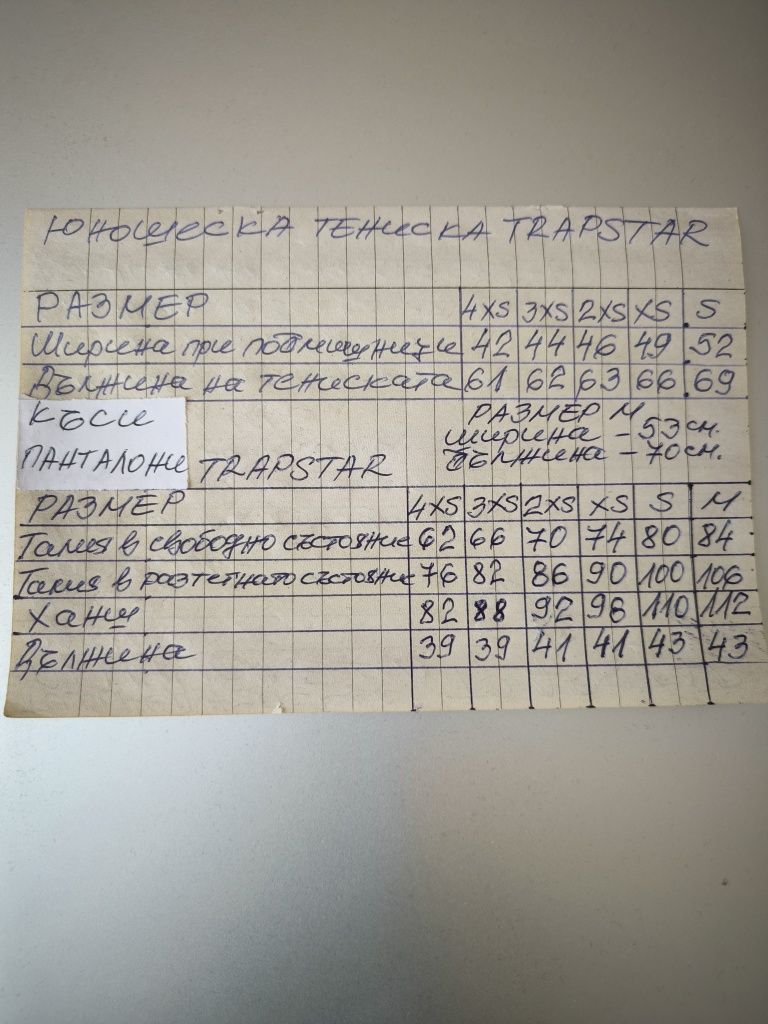 ЮНОШЕСКА ТЕНИСКА TRAPSTAR
РАЗМЕР 4XS 3XS 2XS XS S
Ширина при подмишници 42 44 46 49 52
Дължина на тениската 61 62 63 66 69
РАЗМЕР М
ширина - 53 см.
дължина - 70 см.
КЪСИ
ПАНТАЛОНИ TRAPSTAR
РАЗМЕР 4XS 3XS 2XS XS S M
Талия в свободно състояние 62 66 70 74 80 84
Талия в разтегнато състояние 76 82 86 90 100 106
Ханш 82 88 92 96 110 112
Дължина 39 39 41 41 43 43